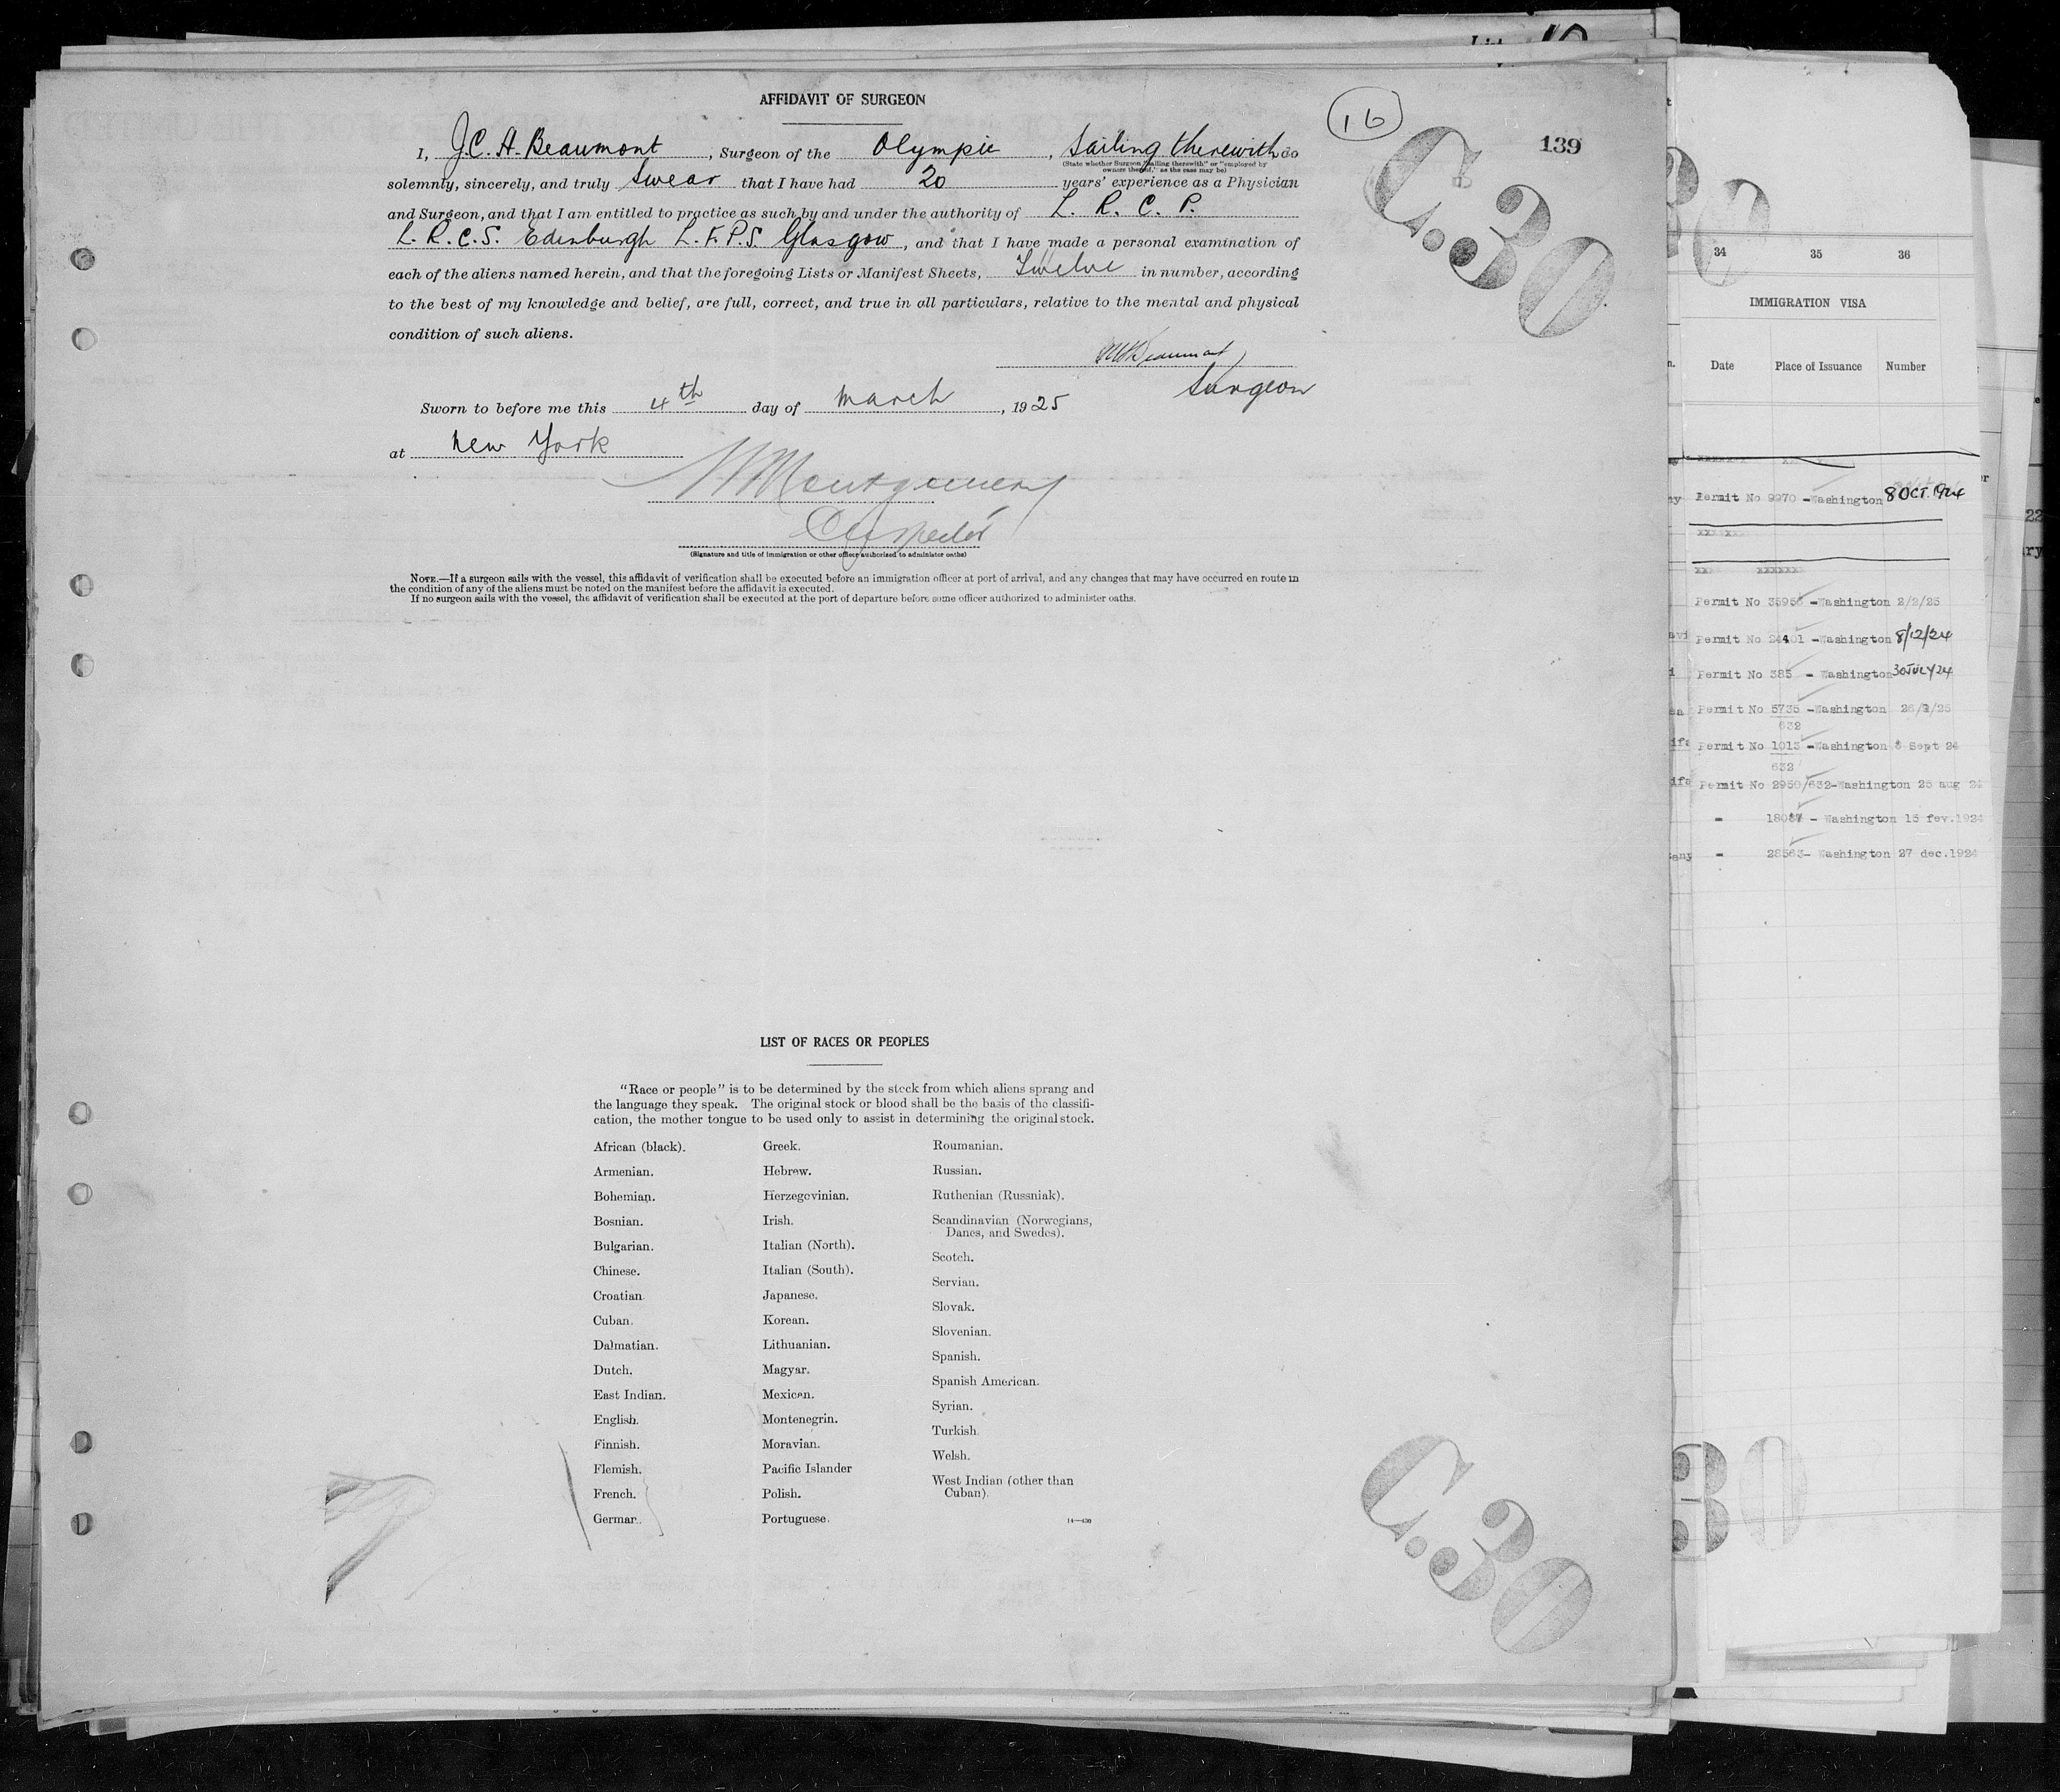 AFFIDAVIT OF SURGEON
16
139
C.30
I, J.C.H. Beaumont, Surgeon of the Olympic, Sailing therewith do
(State whether Surgeon "sailing therewith" or "employed by
owners thereof," as the case may be)
solemnly, sincerely, and truly Swear that I have had 20 years' experience as a Physician
and Surgeon, and that I am entitled to practice as such by and under the authority of L. R. C. P.
L. R. C. S. Edinburgh L. F. P. S. Glasgow, and that I have made a personal examination of
each of the aliens named herein, and that the foregoing Lists or Manifest Sheets, Twelve in number, according
to the best of my knowledge and belief, are full, correct, and true in all particulars, relative to the mental and physical
condition of such aliens.
Beaumont
Surgeon
Sworn to before me this 4th day of March, 1925
at New York
Montgomery
Inspector
(Signature and title of immigration or other officer authorized to administer oaths)
NOTE.—If a surgeon sails with the vessel, this affidavit of verification shall be executed before an immigration officer at port of arrival, and any changes that may have occurred en route in
the condition of any of the aliens must be noted on the manifest before the affidavit is executed.
If no surgeon sails with the vessel, the affidavit of verification shall be executed at the port of departure before some officer authorized to administer oaths.
LIST OF RACES OR PEOPLES
"Race or people" is to be determined by the stock from which aliens sprang and
the language they speak. The original stock or blood shall be the basis of the classifi-
cation, the mother tongue to be used only to assist in determining the original stock.
African (black).
Armenian.
Bohemian.
Bosnian.
Bulgarian.
Chinese.
Croatian
Cuban.
Dalmatian.
Dutch.
East Indian.
English.
Finnish.
Flemish.
French.
German.
Greek.
Hebrew.
Herzegovinian.
Irish.
Italian (North).
Italian (South).
Japanese.
Korean.
Lithuanian.
Magyar.
Mexican.
Montenegrin.
Moravian.
Pacific Islander
Polish.
Portuguese.
Roumanian.
Russian.
Ruthenian (Russniak).
Scandinavian (Norwegians,
Danes, and Swedes).
Scotch.
Servian.
Slovak.
Slovenian.
Spanish.
Spanish American.
Syrian.
Turkish
Welsh.
West Indian (other than
Cuban).
14—430
C.30
34 35 36
IMMIGRATION VISA
Date Place of Issuance Number
Permit No 9970 -Washington 8 OCT. 1924
Permit No 35956 -Washington 2/2/25
Permit No 24401 -Washington 8/12/24
Permit No 385 - Washington 30 JULY/24
Permit No 5735 -Washington 26/2/25
632
Permit No 1013 -Washington 8 Sept 24
632
Permit No 2950/632-Washington 25 aug 24
- Washington 15 fev.1924
- 28563- Washington 27 dec.1924